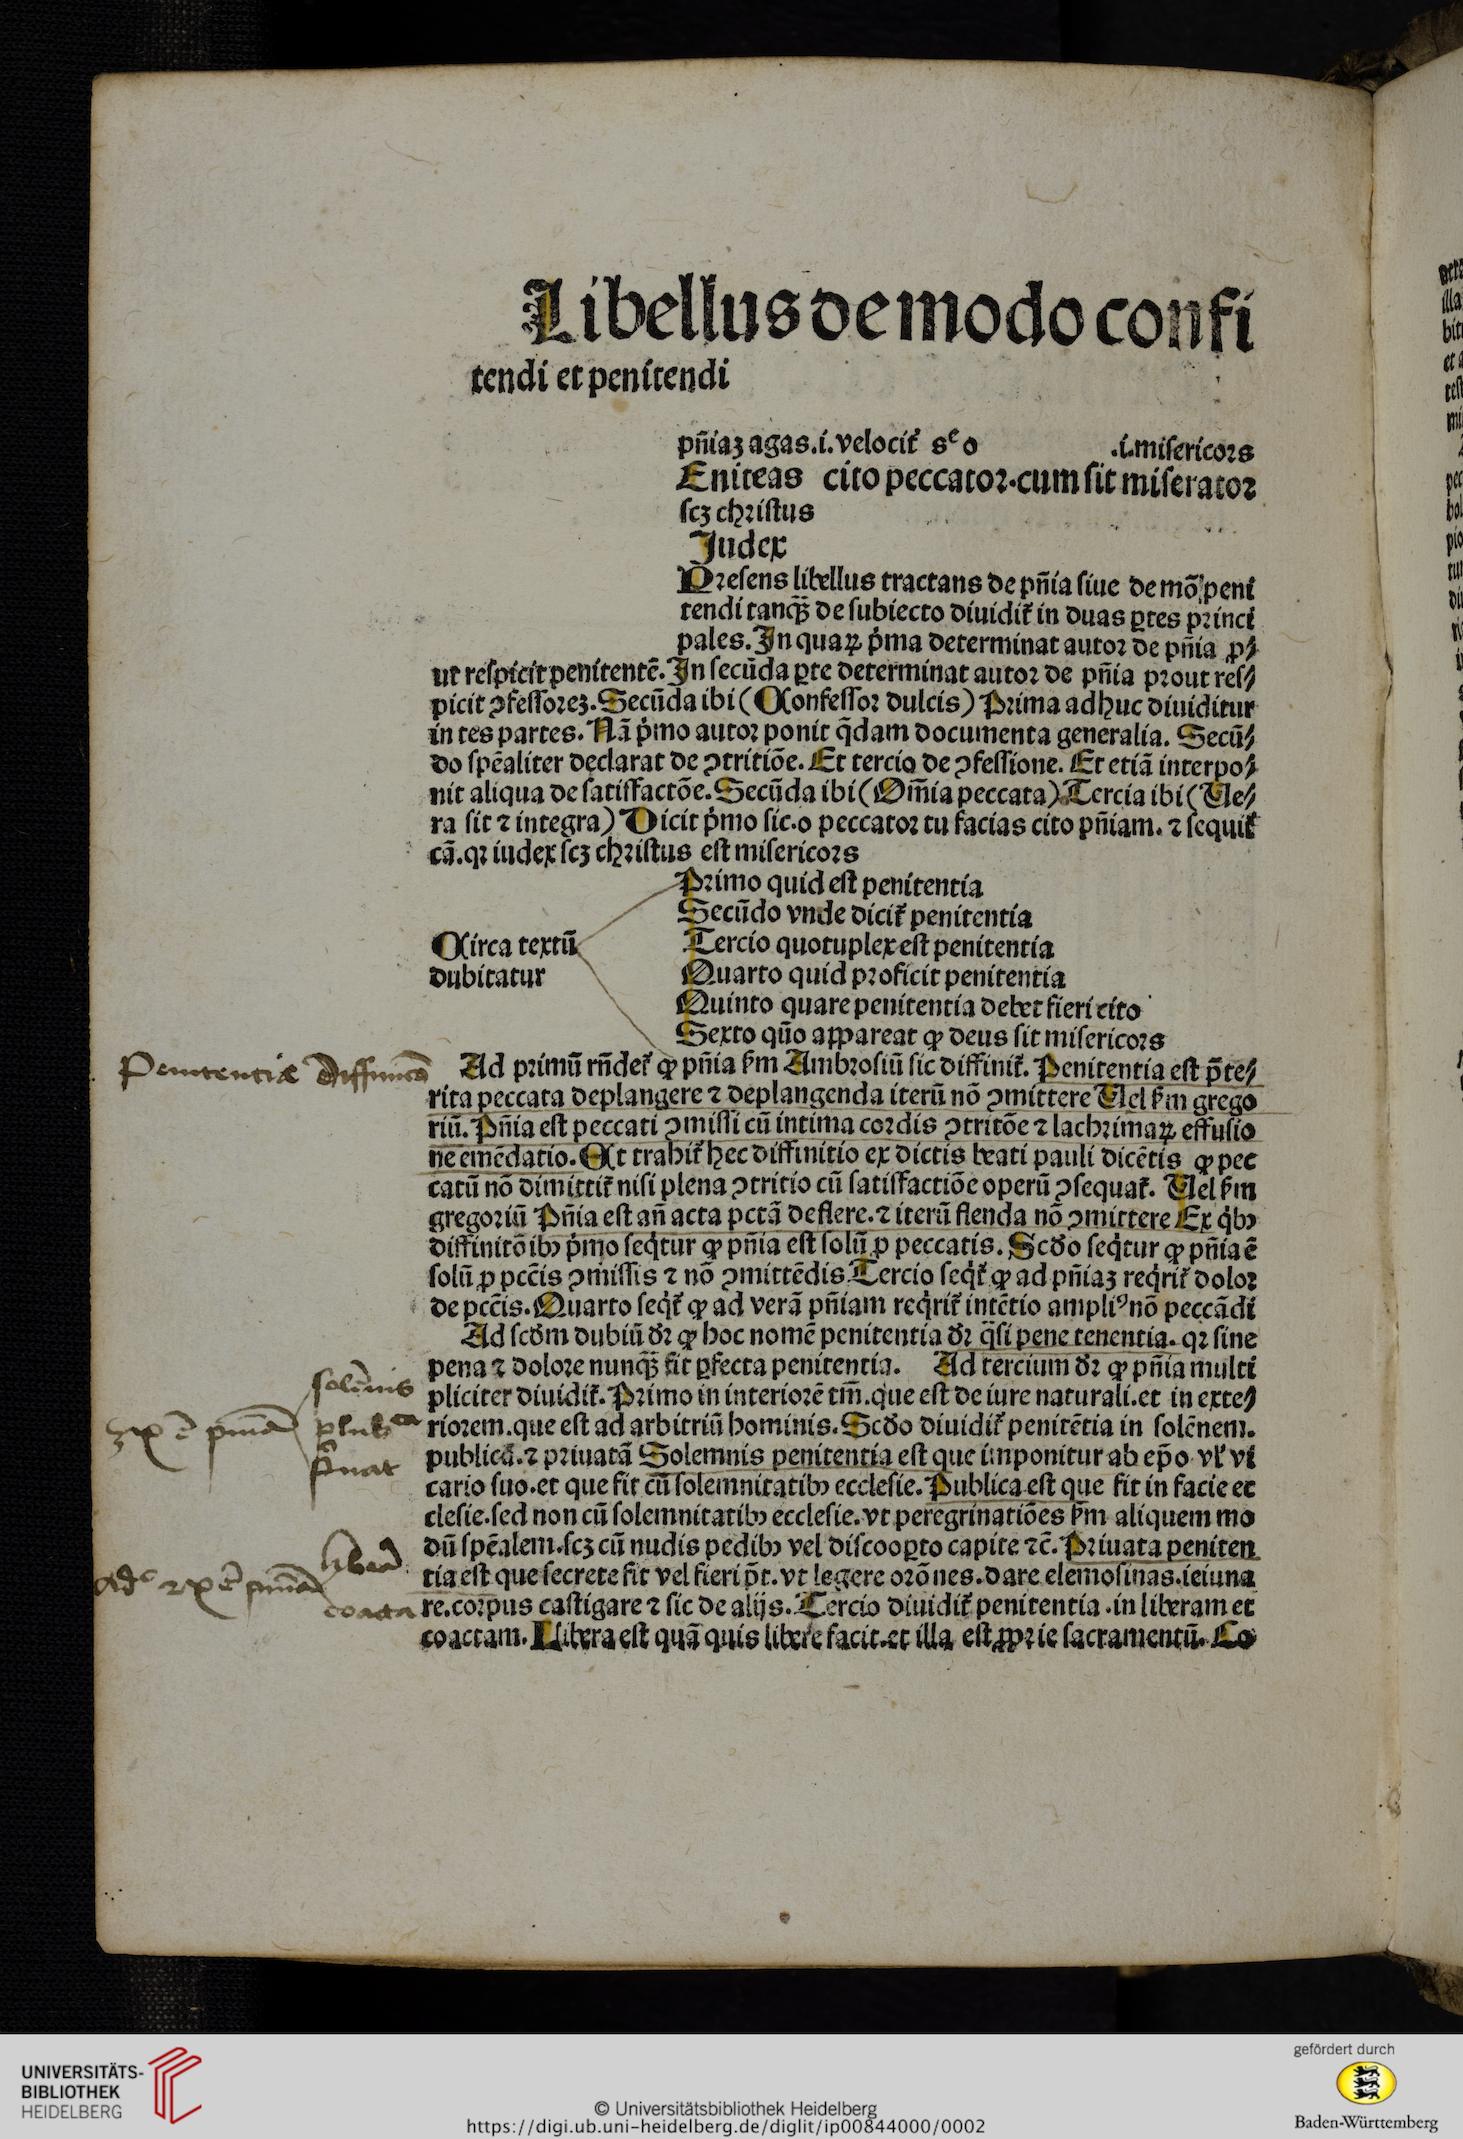 Libellus de modo confi
tendi et penitendi
pñiaz agas.i.velocit̛ sᶜ o .i.misericors
Eniteas cito peccator.cum sit miserator
scz christus
Judex
Presens libellus tractans de pñia siue de mõ peni
tendi tanq̃ꝫ de subiecto diuidit̛ in duas ꝑtes princi
pales. In quaꝝ p̓ma determinat autor de pñia ꝓ⸗
ut respicit penitentẽ. In secũda ꝑte determinat autor de pñia prout res⸗
picit ꝯfessorez. Secũda ibi (Confessor dulcis) Prima adhuc diuiditur
in tes partes. Nã p̓mo autor ponit q̃dam documenta generalia. Secũ⸗
do spẽaliter declarat de ꝯtritiõe. Et tercio de ꝯfessione. Et etiã interpo⸗
nit aliqua de satisfactõe. Secũda ibi (Om̃ia peccata) Tercia ibi (Ue⸗
ra sit ⁊ integra) Dicit p̓mo sic.o peccator tu facias cito pñiam. ⁊ sequit̛
cã.qꝛ iudex scz christus est misericors
Primo quid est penitentia
Secũdo vnde dicit̛ penitentia
Circa textũ Tercio quotuplex est penitentia
dubitatur Quarto quid proficit penitentia
Quinto quare penitentia debet fieri cito
Sexto qũo appareat ꝙ deus sit misericors
Penitentiæ Diffinitõ
Ad primũ rñdet̛ ꝙ pñia ẜm Ambrosiũ sic diffinit̛. Penitentia est p̃te⸗
rita peccata deplangere ⁊ deplangenda iterũ nõ ꝯmittere Uel ẜm grego
riũ. Pñia est peccati ꝯmissi cũ intima cordis ꝯtritõe ⁊ lachrimaꝝ effusio
ne emẽdatio. Et trahit̛ hec diffinitio ex dictis beati pauli dicẽtis ꝙ pec
catũ nõ dimittit̛ nisi plena ꝯtritio cũ satisfactiõe operũ ꝯsequat̛. Uel ẜm
gregoriũ Pñia est añ acta pctã deflere.⁊ iterũ flenda nõ ꝯmittere Ex q̓bꝰ
diffinitõibꝰ p̓mo seq̓tur ꝙ pñia est solũ ꝓ peccatis. Scd̓o seq̓tur ꝙ pñia ẽ
solũ ꝓ pcc̃is ꝯmissis ⁊ nõ ꝯmittẽdis Tercio seq̓t̛ ꝙ ad pñiaz req̓rit̛ dolor
de pcc̃is. Quarto seq̓t̛ ꝙ ad verã pñiam req̓rit̛ intẽtio ampliꝰ nõ peccãdi
Ad scd̓m dubiũ d̓ꝛ ꝙ hoc nomẽ penitentia d̓ꝛ q̃si pene tenentia. qꝛ sine
pena ⁊ dolore nunq̃ꝫ fit ꝑfecta penitentia. Ad tercium d̓ꝛ ꝙ pñia multi
pliciter diuidit̛. Primo in interiorẽ tm̃.que est de iure naturali.et in exte⸗
riorem.que est ad arbitriũ hominis. Scd̓o diuidit̛ penitẽtia in solẽnem.
publicã.⁊ priuatã Solemnis penitentia est que imponitur ab ep̃o vl̛ vi
cario suo.et que fit cũ solemnitatibꝰ ecclesie. Publica est que fit in facie ec
clesie.sed non cũ solemnitatibꝰ ecclesie.vt peregrinatiões ẜm aliquem mo
dũ spẽalem.scz cũ nudis pedibꝰ vel discooꝑto capite ⁊c̃. Priuata peniten
tia est que secrete fit vel fieri p̃t.vt legere orõnes.dare elemosinas.ieiuna
re.corpus castigare ⁊ sic de alijs. Tercio diuidit̛ penitentia .in liberam et
coactam. Libera est quã quis libere facit.et illa est ꝓprie sacramentũ. Co
solẽnis
coacta
UNIVERSITÄTS-
BIBLIOTHEK
HEIDELBERG
© Universitätsbibliothek Heidelberg
https://digi.ub.uni-heidelberg.de/diglit/ip00844000/0002
gefördert durch
Baden-Württemberg